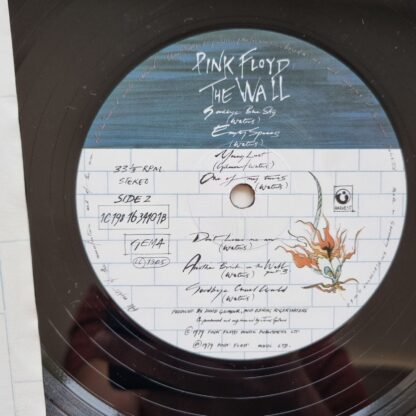 PINK FLOYD
THE WALL
Goodbye Blue Sky
(Waters)
Empty Spaces
(Waters)
Young Lust
(Gilmour/Waters)
One of my turns
(Waters)
33⅓ RPM
STEREO
SIDE 2
1C198 1634101B
GEMA
LC1305
HARVEST
Don't leave me now
(Waters)
Another Brick in the Wall
part 3
(Waters)
Goodbye Cruel World
(Waters)
PRODUCED BY DAVID GILMOUR, BOB EZRIN, ROGER WATERS
Ⓟ1979 PINK FLOYD MUSIC PUBLISHERS LTD.
Ⓟ1979 PINK FLOYD MUSIC LTD.